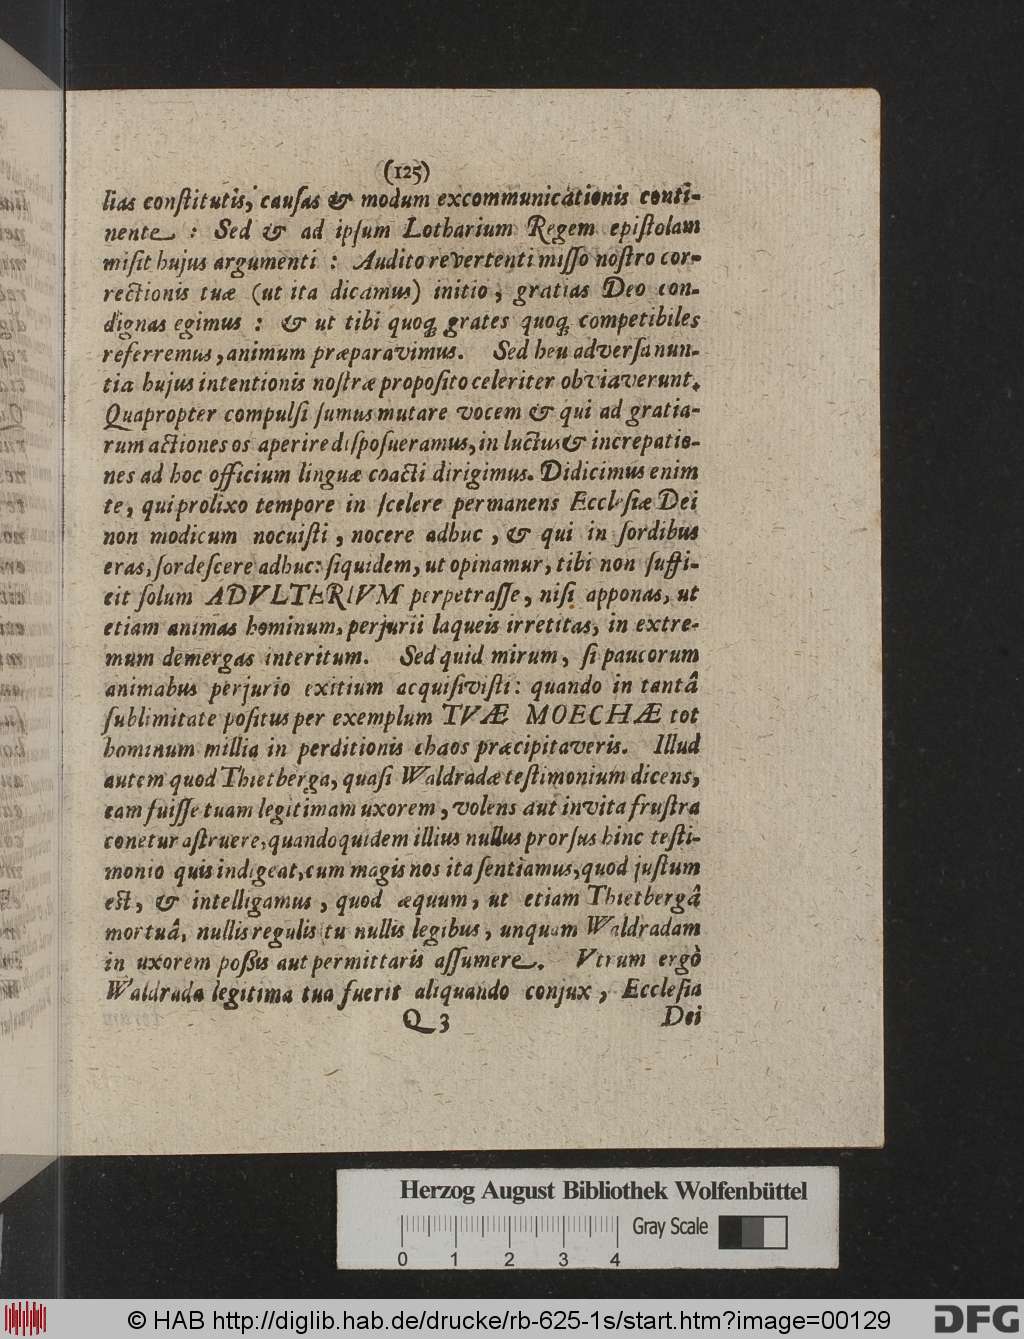 (125)
lias constitutis, causas & modum excommunicationis conti-
nente : Sed & ad ipsum Lotharium Regem epistolam
misit hujus argumenti : Audito revertenti misso nostro cor-
rectionis tuæ (ut ita dicamus) initio, gratias Deo con-
dignas egimus : & ut tibi quoq; grates quoq; competibiles
referremus, animum præparavimus. Sed heu adversa nun-
tia hujus intentionis nostræ proposito celeriter obviaverunt.
Quapropter compulsi sumus mutare vocem & qui ad gratia-
rum actiones os aperire disposueramus, in luctus & increpatio-
nes ad hoc officium linguæ coacti dirigimus. Didicimus enim
te, qui prolixo tempore in scelere permanens Ecclesiæ Dei
non modicum nocuisti, nocere adhuc, & qui in sordibus
eras, sordescere adhuc: siquidem, ut opinamur, tibi non suffi-
cit solum ADVLTERIVM perpetrasse, nisi apponas, ut
etiam animas hominum, perjurii laqueis irretitas, in extre-
mum demergas interitum. Sed quid mirum, si paucorum
animabus perjurio exitium acquisivisti: quando in tantâ
sublimitate positus per exemplum TVÆ MOECHÆ tot
hominum millia in perditionis chaos præcipitaveris. Illud
autem quod Thietberga, quasi Waldradæ testimonium dicens,
eam fuisse tuam legitimam uxorem, volens aut invita frustra
conetur astruere, quandoquidem illius nullus prorsus hinc testi-
monio quis indigeat, cum magis nos ita sentiamus, quod justum
est, & intelligamus, quod æquum, ut etiam Thietbergâ
mortuâ, nullis regulis tu nullis legibus, unquam Waldradam
in uxorem poßis aut permittaris assumere. Vtrum ergò
Waldrada legitima tua fuerit aliquando conjux, Ecclesia
Q 3 Dei
Herzog August Bibliothek Wolfenbüttel
Gray Scale
0 1 2 3 4
© HAB http://diglib.hab.de/drucke/rb-625-1s/start.htm?image=00129
DFG